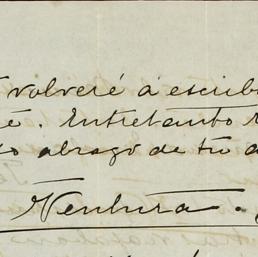 volveré á escribi
é. Entretanto r
o abrazo de tu a
Ventura.